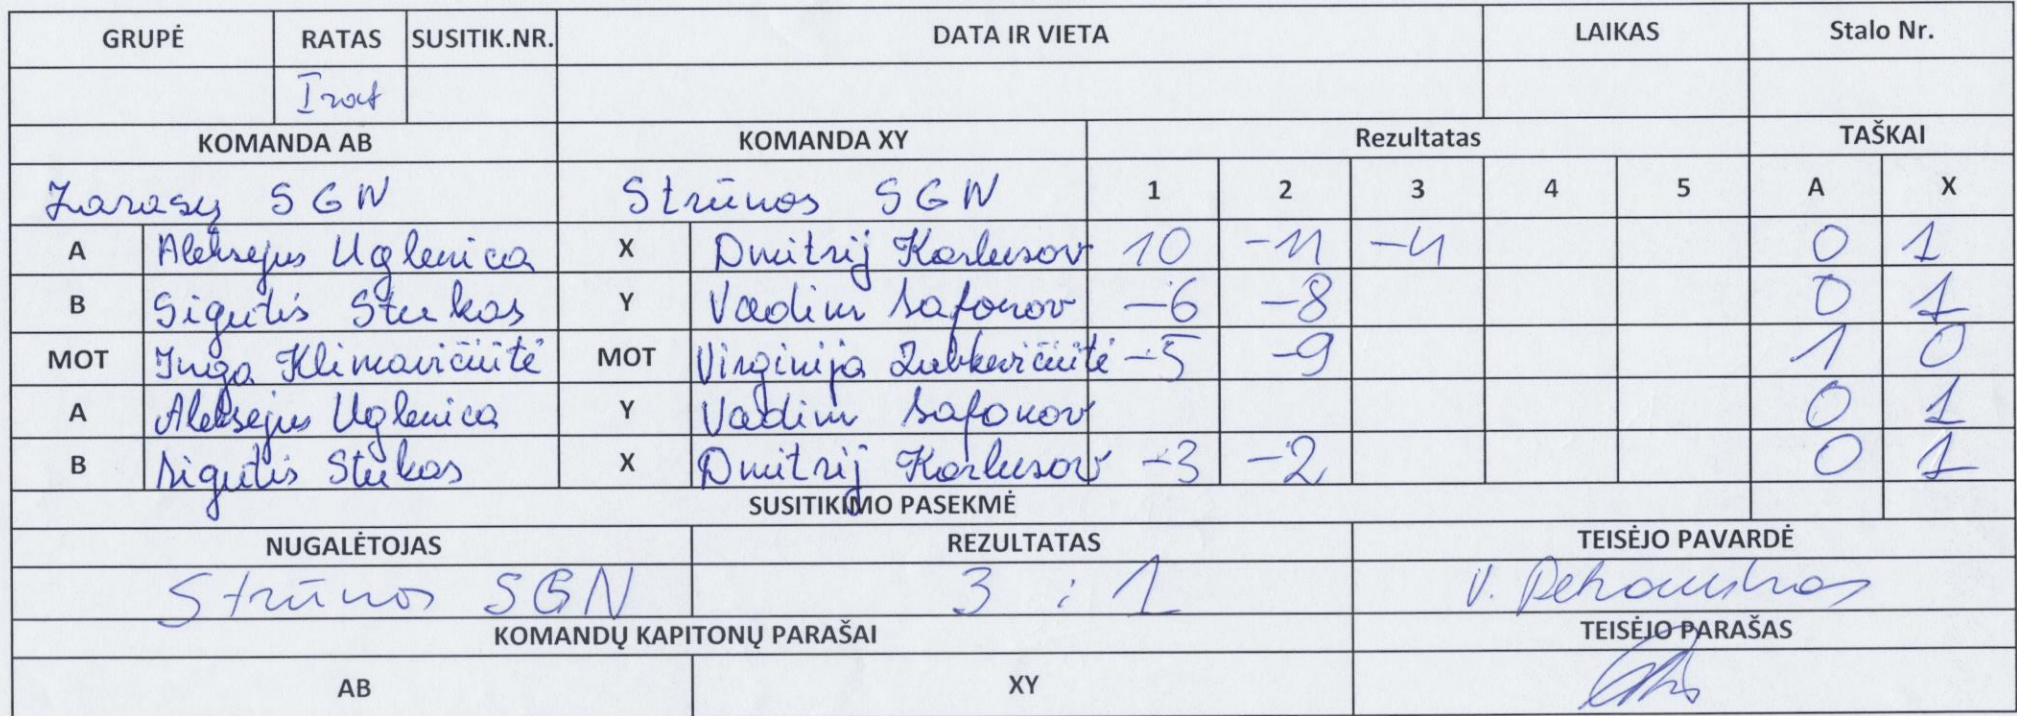 GRUPĖ RATAS SUSITIK.NR. DATA IR VIETA LAIKAS Stalo Nr.
I rat
KOMANDA AB KOMANDA XY Rezultatas TAŠKAI
Zarasų SGN Strūnos SGN 1 2 3 4 5 A X
A Aleksejus Uglenica X Dmitrij Korlusov 10 -11 -4 0 1
B Sigutis Stukas Y Vadim Safonov -6 -8 0 1
MOT Inga Klimavičiūtė MOT Virginija Zubkevičiūtė -5 -9 1 0
A Aleksejus Uglenica Y Vadim Safonov 0 1
B Sigutis Stukas X Dmitrij Korlusov -3 -2 0 1
SUSITIKIMO PASEKMĖ
NUGALĖTOJAS REZULTATAS TEISĖJO PAVARDĖ
Strūnos SGN 3 : 1 V.
KOMANDŲ KAPITONŲ PARAŠAI TEISĖJO PARAŠAS
AB XY